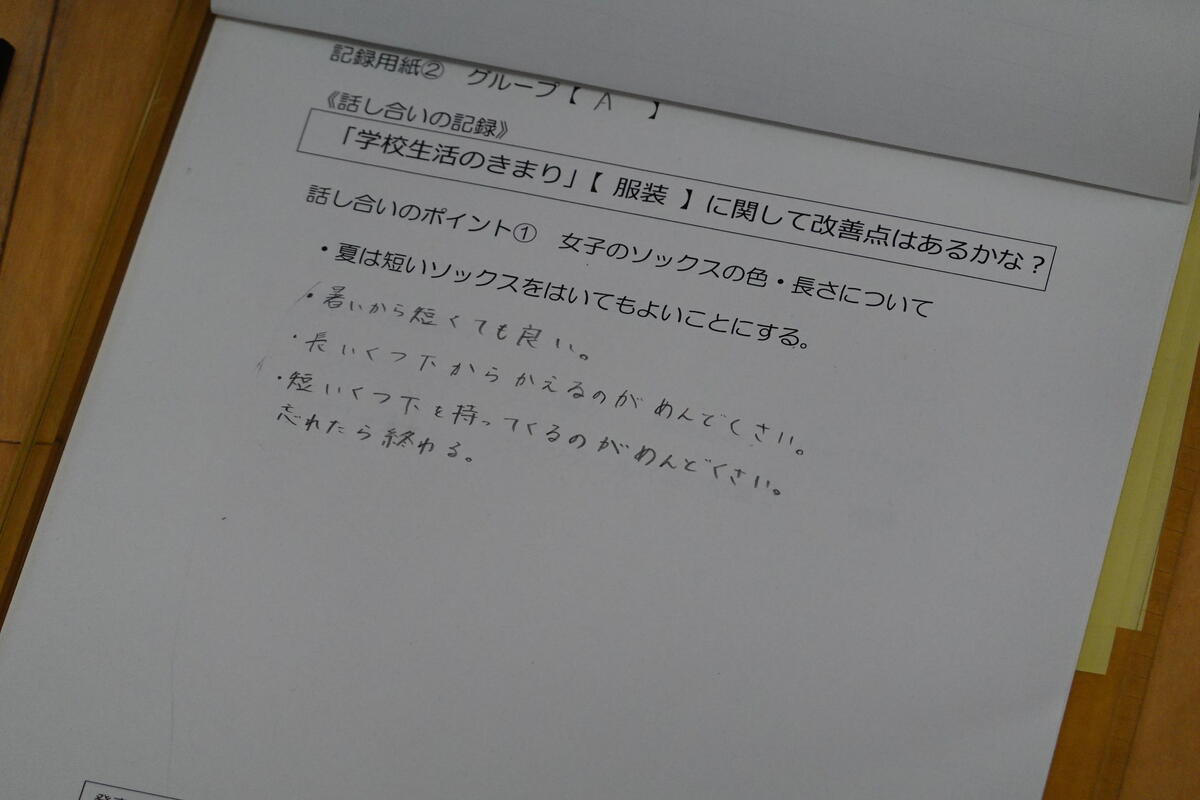 記録用紙② グループ【 A 】
《話し合いの記録》
「学校生活のきまり」【 服装 】に関して改善点はあるかな？
話し合いのポイント① 女子のソックスの色・長さについて
・夏は短いソックスをはいてもよいことにする。
・暑いから短くても良い。
・長いくつ下からかえるのがめんどくさい。
・短いくつ下を持ってくるのがめんどくさい。
忘れたら終わる。